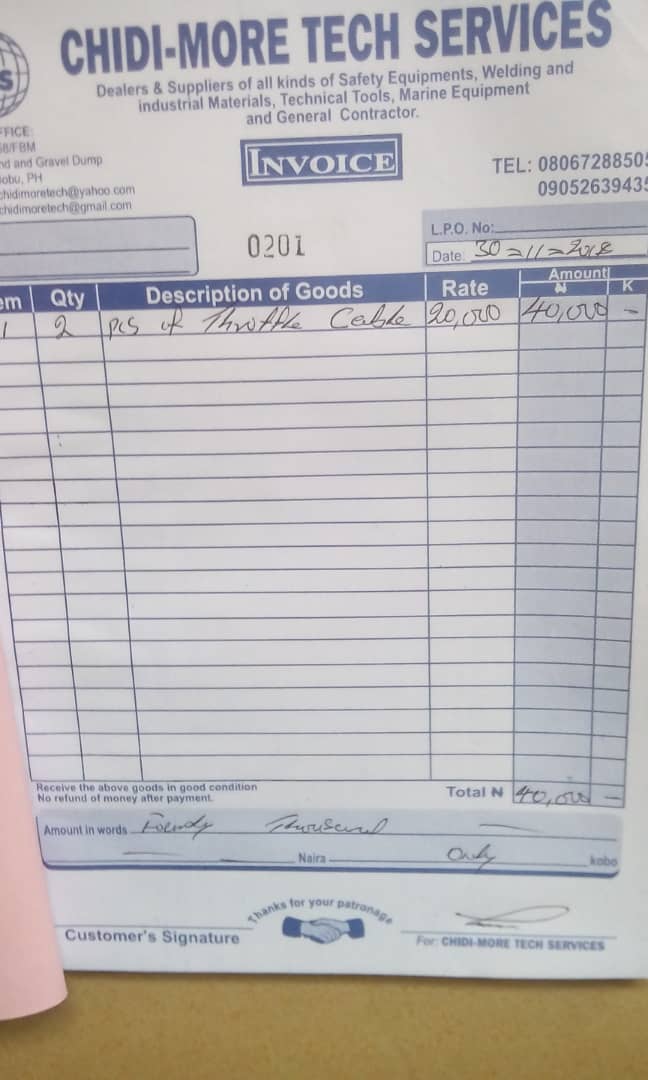 CHIDI-MORE TECH SERVICES
S
Dealers & Suppliers of all kinds of Safety Equipments, Welding and
industrial Materials, Technical Tools, Marine Equipment
and General Contractor.
FFICE:
58/FBM
nd and Gravel Dump
obu, PH
chidimoretech@yahoo.com
chidimoretech@gmail.com
INVOICE
TEL: 08067288505
09052639435
0201
L.P.O. No:
Date: 30=11=2018
em Qty Description of Goods Rate Amount
₦ K
1 2 pcs of Throttle Cable 20,000 40,000 -
Receive the above goods in good condition
No refund of money after payment.
Total ₦ 40,000 -
Amount in words Fourty Thousand
Naira Only kobo
Thanks for your patronage
Customer's Signature
For: CHIDI-MORE TECH SERVICES